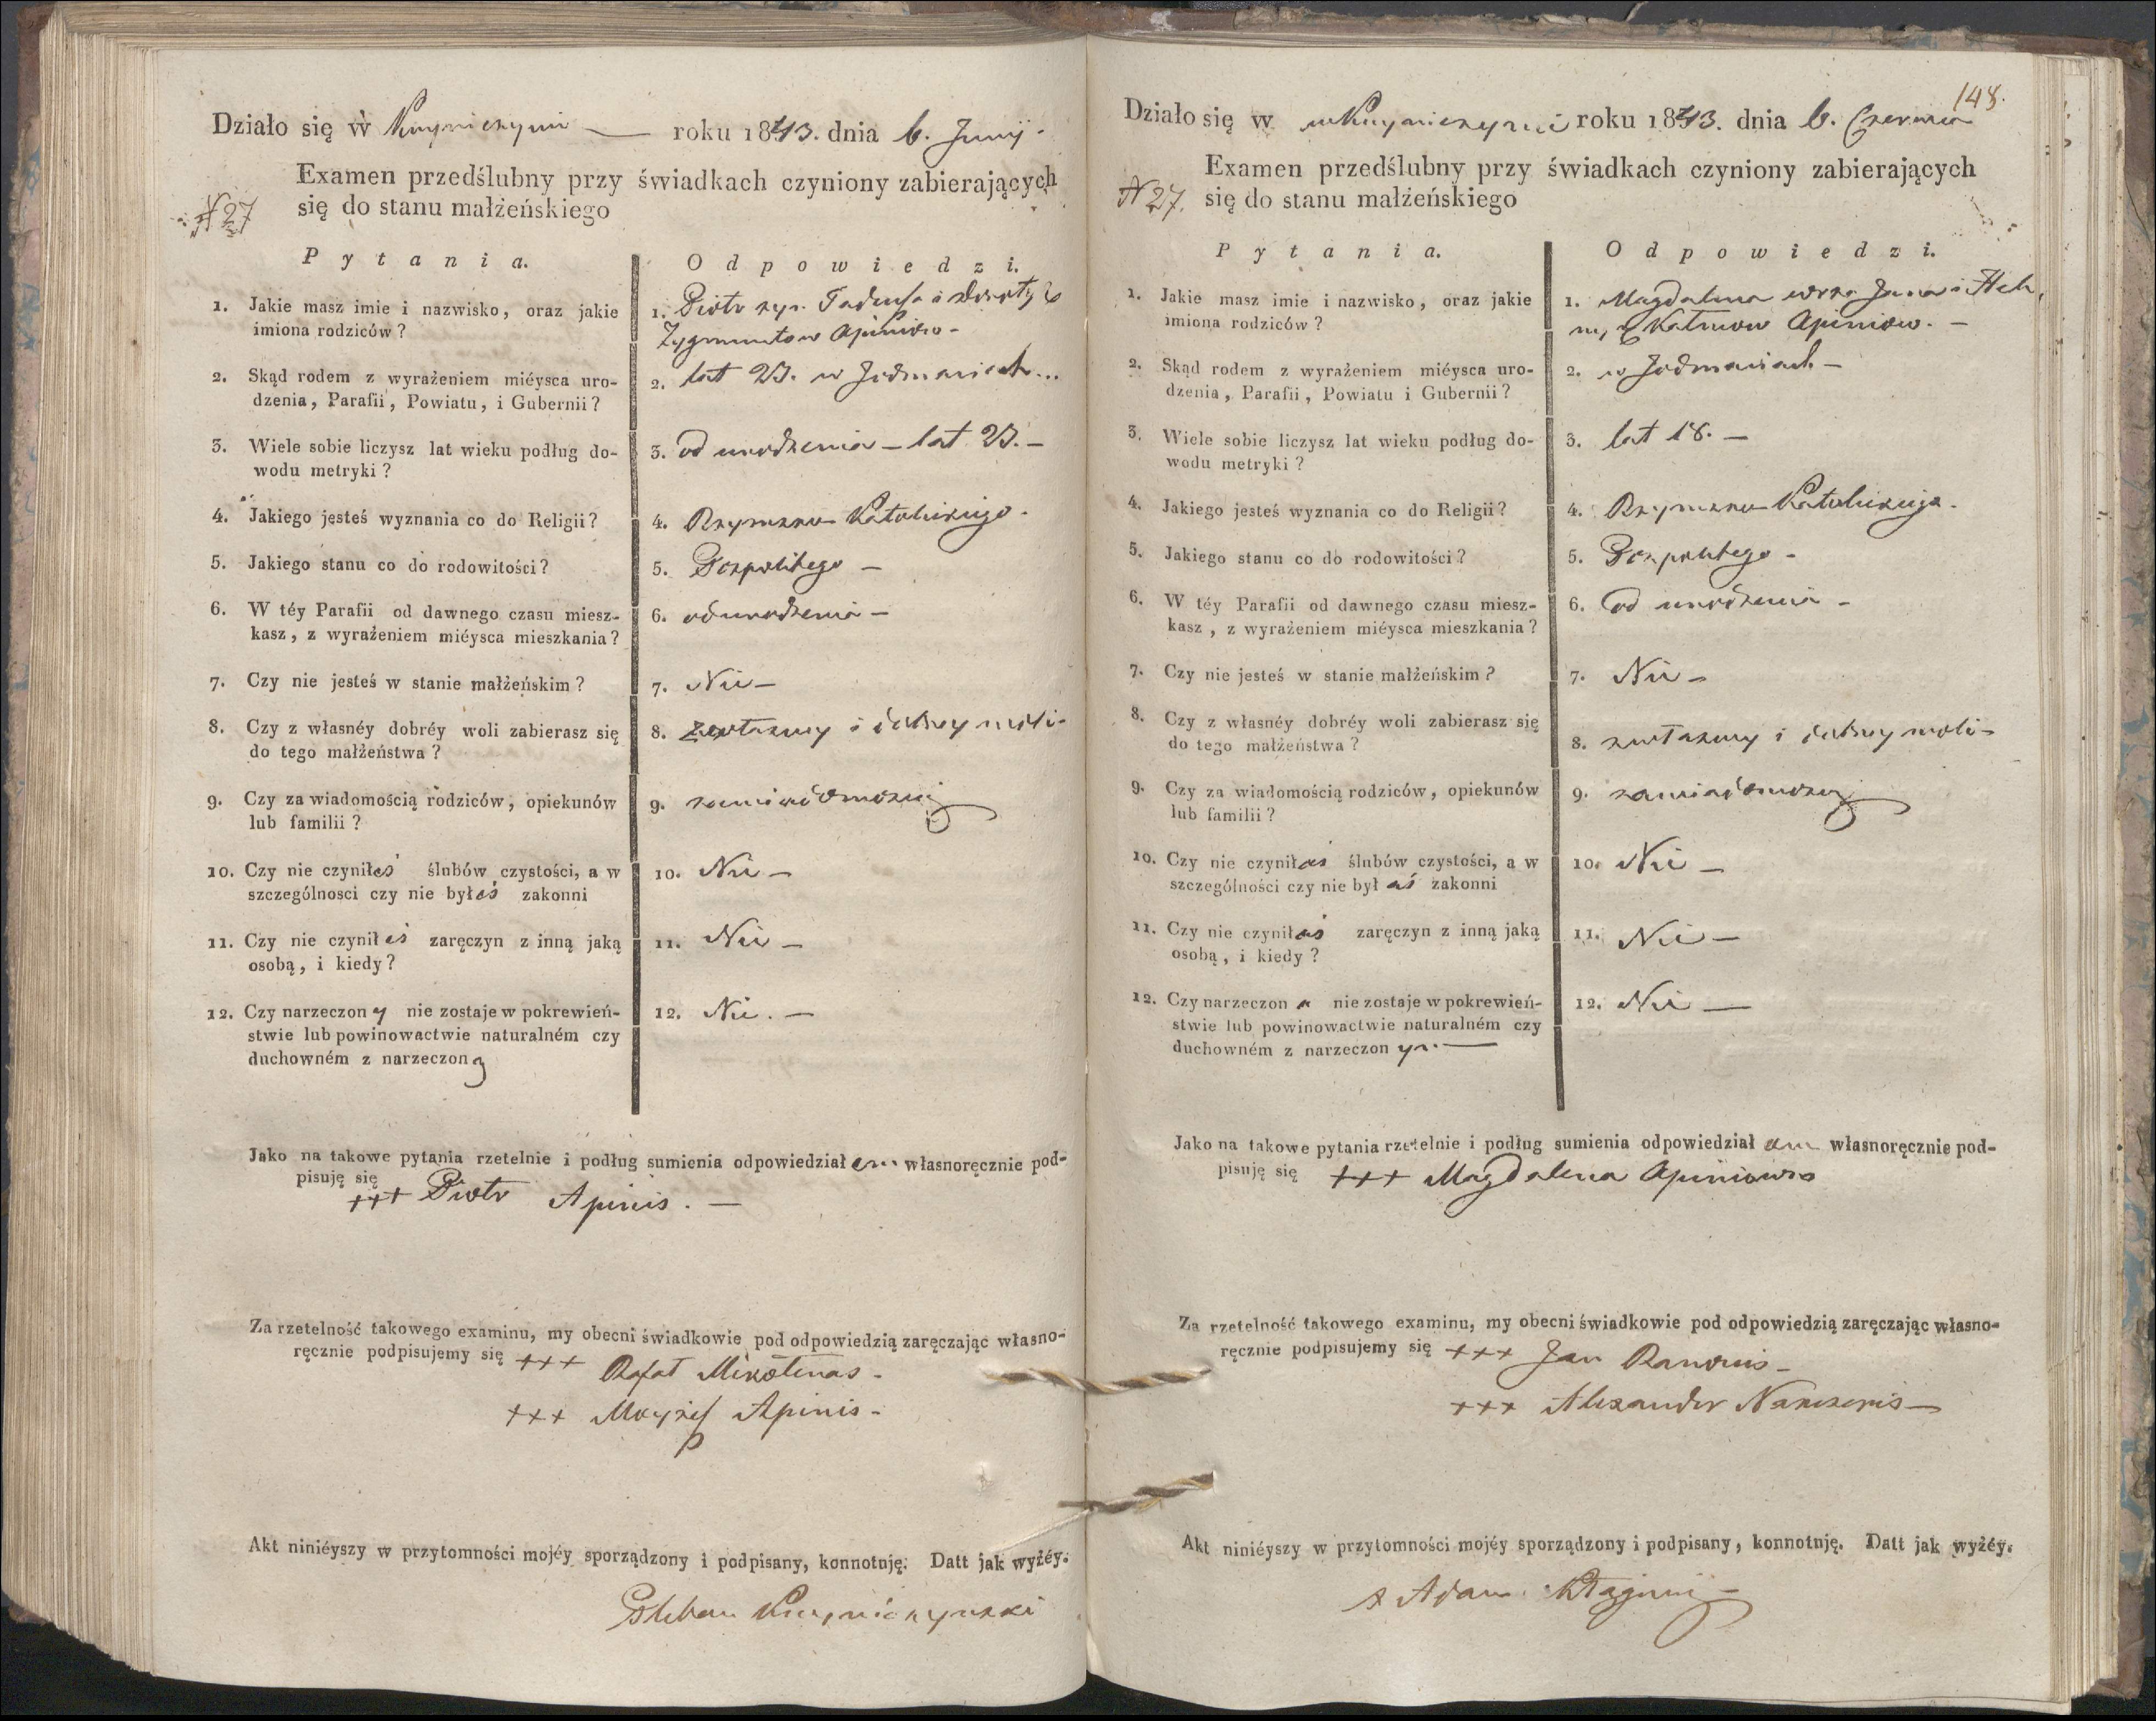 Działo się w roku 1843. dnia 6. Junij.
Examen przedślubny przy świadkach czyniony zabierających
się do stanu małżeńskiego
N 27
Pytania. Odpowiedzi.
1. Jakie masz imie i nazwisko, oraz jakie
imiona rodziców?
1. Piotr syn Tadeusza i Doroty z
Zygmuntow Apiniow -
2. Skąd rodem z wyrażeniem miéysca uro-
dzenia, Parafii, Powiatu, i Gubernii?
2. lat 23. w
3. Wiele sobie liczysz lat wieku podług do-
wodu metryki?
3. od urodzenia - lat 23. -
4. Jakiego jesteś wyznania co do Religii?
4. Rzymsko Katolickiego.
5. Jakiego stanu co do rodowitości?
5. Pospolitego -
6. W téy Parafii od dawnego czasu miesz-
kasz, z wyrażeniem miéysca mieszkania?
6. od urodzenia -
7. Czy nie jesteś w stanie małżeńskim?
7. Nie -
8. Czy z własnéy dobréy woli zabierasz się
do tego małżeństwa?
8. zwłasney i dobrey woli -
9. Czy za wiadomością rodziców, opiekunów
lub familii?
9. zawiadomością
10. Czy nie czyniłeś ślubów czystości, a w
szczególnosci czy nie byłeś zakonni
10. Nie -
11. Czy nie czynił eś zaręczyn z inną jaką
osobą, i kiedy?
11. Nie -
12. Czy narzeczon y nie zostaje w pokrewień-
stwie lub powinowactwie naturalném czy
duchowném z narzeczon ą
12. Nie. -
Jako na takowe pytania rzetelnie i podług sumienia odpowiedział em własnoręcznie pod-
pisuję się
+++ Piotr Apinis. -
Za rzetelność takowego examinu, my obecni świadkowie pod odpowiedzią zaręczając własno-
ręcznie podpisujemy się +++ Rafał Mikolenas -
+++ Apinis -
Akt niniéyszy w przytomności mojéy sporządzony i podpisany, konnotuję. Datt jak wyżéy.
148.
Działo się w roku 1843. dnia 6. Czerwca
Examen przedślubny przy świadkach czyniony zabierających
N 27. się do stanu małżeńskiego
Pytania. Odpowiedzi.
1. Jakie masz imie i nazwisko, oraz jakie
imiona rodziców?
1. Magdalena corka Jana i Hele
ny z Apiniow. -
2. Skąd rodem z wyrażeniem miéysca uro-
dzenia, Parafii, Powiatu i Gubernii?
2. w
3. Wiele sobie liczysz lat wieku podług do-
wodu metryki?
3. lat 18. -
4. Jakiego jesteś wyznania co do Religii?
4. Rzymsko Katolickiego.
5. Jakiego stanu co do rodowitości?
5. Pospolitego -
6. W téy Parafii od dawnego czasu miesz-
kasz, z wyrażeniem miéysca mieszkania?
6. od urodzenia -
7. Czy nie jesteś w stanie małżeńskim?
7. Nie -
8. Czy z własnéy dobréy woli zabierasz się
do tego małżeństwa?
8. zwłasney i dobrey woli -
9. Czy za wiadomością rodziców, opiekunów
lub familii?
9. zawiadomością
10. Czy nie czynił aś ślubów czystości, a w
szczególności czy nie był aś zakonni
10. Nie -
11. Czy nie czynił aś zaręczyn z inną jaką
osobą, i kiedy?
11. Nie -
12. Czy narzeczon a nie zostaje w pokrewień-
stwie lub powinowactwie naturalném czy
duchowném z narzeczon ym. -
12. Nie -
Jako na takowe pytania rzetelnie i podług sumienia odpowiedział am własnoręcznie pod-
pisuję się +++ Magdalena Apiniowa
Za rzetelność takowego examinu, my obecni świadkowie pod odpowiedzią zaręczając własno-
ręcznie podpisujemy się +++ Jan
+++ Alexander
Akt niniéyszy w przytomności mojéy sporządzony i podpisany, konnotuję. Datt jak wyżéy.
Adam